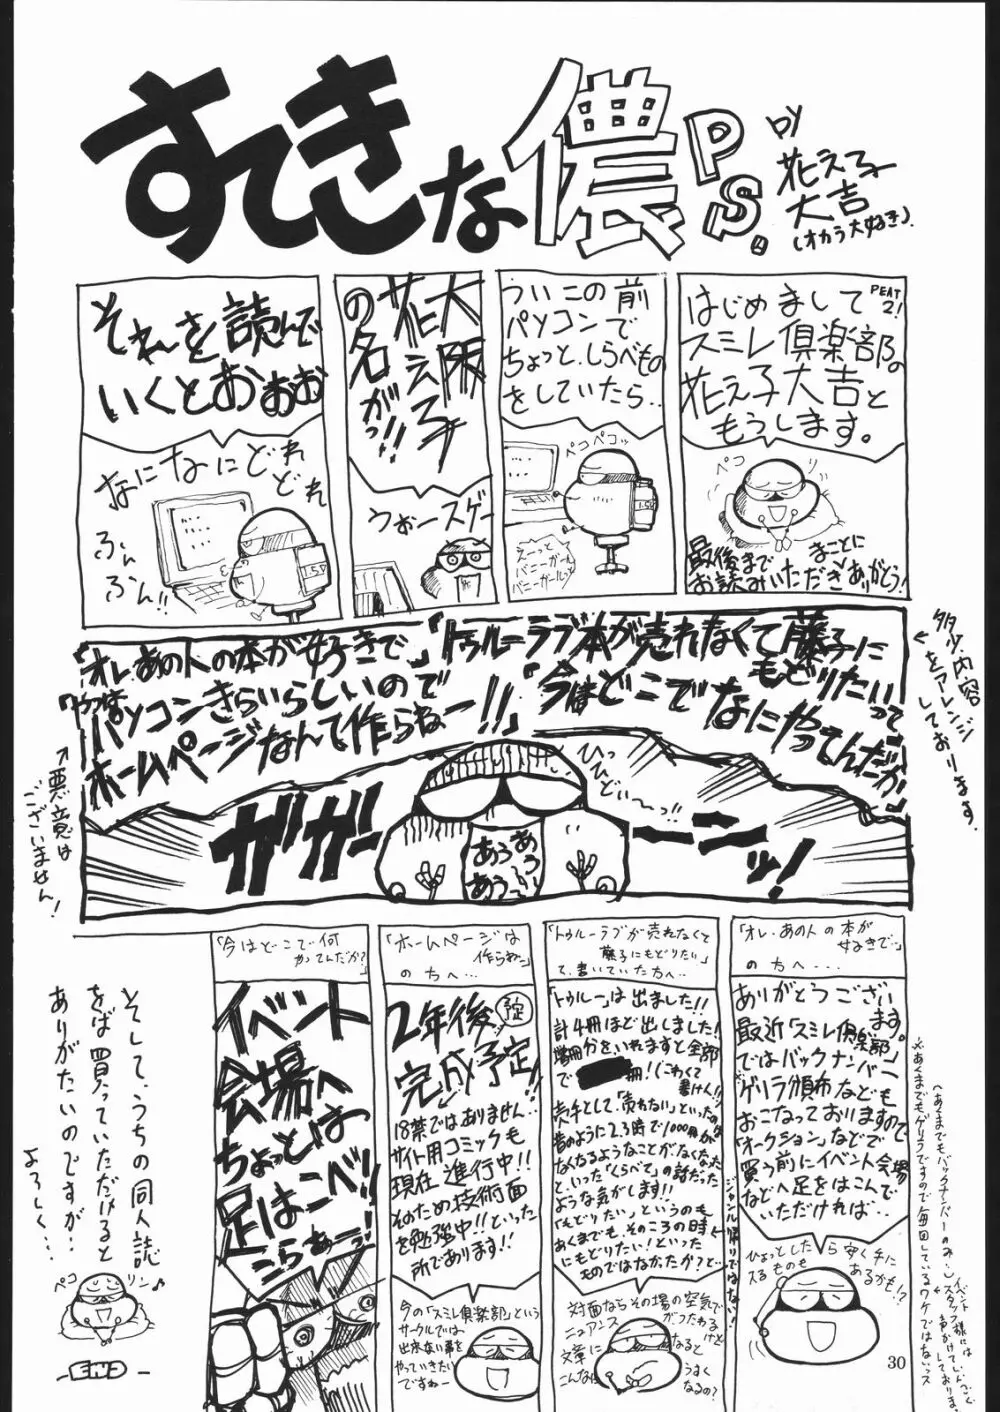 すてきな儂
P.S.
by
花え子
大吉
(オカラ大好き).
PEAT
2!
はじめまして
スミレ倶楽部の
花え子大吉と
もうします。
ペコ
リ
最後まで
お読みいただき
まことに
ありがとう!
ういこの前
パソコンで
ちょっと、しらべもの
をしていたら‥
ペコペコッ
えーっと
バニーガール
バニーガールと
大阪
花え子
の名がっ!!
うぉースゲー
それを読んで
いくとおぉぉ
なになにどれ
どれ
ふん
ふん!!
「トゥルーラブ本が売れなくて藤子に
もどりたいって」
「今はどこでなにやってんだか」
「オレあの人の本が好きで」
パソコンきらいらしいので
ホームページなんて作らねー!!」
←多少内容
をアレンジ
しております。
→悪意は
ございません!
ひっ
ひどぃ〜っ!!
ガガーーーンッ!
あうあう
あうあう
「オレ、あの人の本が
好きで‥」
の方へ‥‥
ありがとうござい
ます。
最近「スミレ倶楽部」
ではバックナンバー
ゲリラ頒布なども
おこなっておりますので
「オークション」などで
買う前にイベント会場
などへ足をはこんで
いただければ‥
ひょっとしたら安く手に
入るものも
あるかも!?
(あくまでもバックナンバーのみ‥)
※あくまでもゲリラですので毎回しているワケではないっス
イベント
スタッフ様には
声かけて
しております。
「トゥルーラブが売れなくて
藤子にもどりたい」
て、書いていた方へ‥
「トゥルー」は出ました!!
計4冊ほど出しました!
増冊分をいれますと全部
で
冊!(こわくて
書けん!!)
売手として、「売れない」といったのは
昔のように2,3時で1000冊が
なくなるようなことがなくなった
といった「くらべて」の話だった
ような気がします!!
「もどりたい」というのも
あくまでも、そのころの時←
にもどりたい!といった
ものではなかったか?と‥
ジャンル帰りではない!
対面ならその場の空気で
ニュアンス
がつたわる
けど
文章に
なると
こんなに
うまく
なるの?
「ホームページは
作らね‥」
の方へ‥
2年後
予定
完成予定
18禁ではありません‥
サイト用コミックも
現在進行中!!
そのため技術面
を勉強中!!といった
所であります!!
今の「スミレ倶楽部」という
サークルでは
出来ない事を
やっていきたい
ですねー
「今はどこで何
やってんだか?」
イベント
会場へ
ちょっとは
足はこべ!!
こらぁーっ!
そして、うちの同人誌
をば買っていただけると
ありがたいのですが‥
よろしく‥‥
ペコ
リン♪
-END-
30